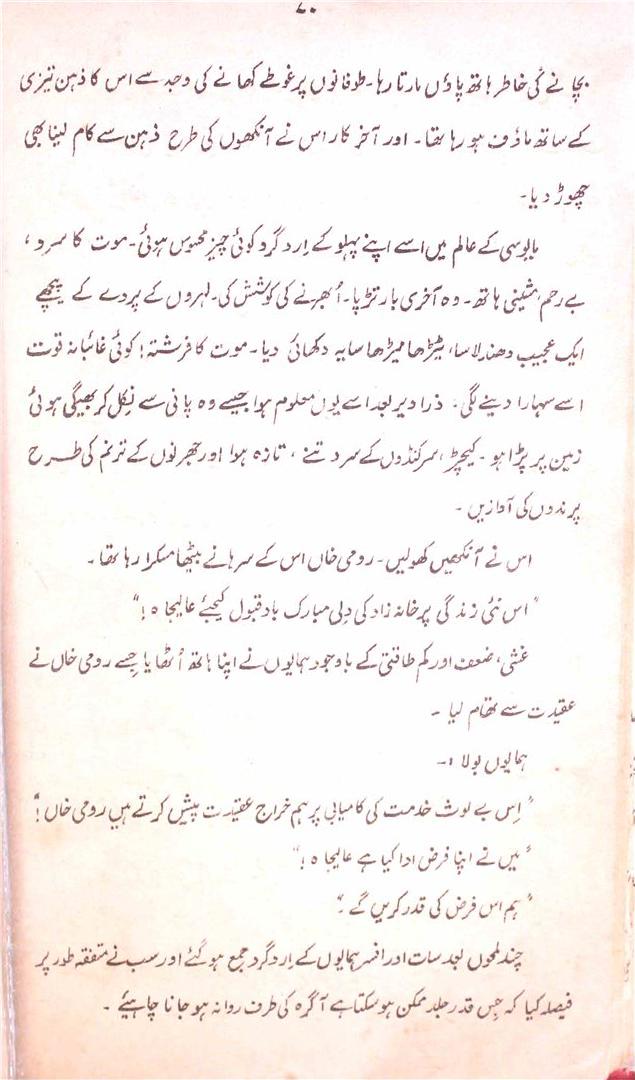 ۷۰
بچانے کی خاطر ہاتھ پاؤں مارتا رہا۔ طوفانوں پر غوطے کھانے کی وجہ سے اس کا ذہن تیزی
کے ساتھ ماؤف ہو رہا تھا۔ اور آخر کار اس نے آنکھوں کی طرح ذہن سے کام لینا بھی
چھوڑ دیا۔
مایوسی کے عالم میں اسے اپنے پہلو کے اِرد گرد کوئی چیز محسوس ہوئی۔ موت کا سرد،
بے رحم، مشینی ہاتھ۔ وہ آخری بار تڑپا۔ اُبھرنے کی کوشش کی۔ لہروں کے پردے کے پیچھے
ایک عجیب دھندلا سا، ٹیڑھا میڑھا سایہ دکھائی دیا۔ موت کا فرشتہ! کوئی غائبانہ قوت
اسے سہارا دینے لگی۔ ذرا دیر بعد اسے یوں معلوم ہوا جیسے وہ پانی سے نِکل کر بھیگی ہوئی
زمین پر پڑا ہو۔ کیچڑ، سرکنڈوں کے سرد تنے، تازہ ہوا اور جھرنوں کے ترنم کی طرح
پرندوں کی آوازیں۔
اس نے آنکھیں کھولیں۔ رومی خاں اس کے سرہانے بیٹھا مسکرا رہا تھا۔
"اس نئی زندگی پر خانہ زاد کی دِلی مبارک باد قبول کیجئے عالیجاہ!"
غشی، ضعف اور کم طاقتی کے باوجود ہمایوں نے اپنا ہاتھ اُٹھایا جِسے رومی خاں نے
عقیدت سے تھام لیا۔
ہمایوں بولا :۔
"اِس بے لوث خدمت کی کامیابی پر ہم خراج عقیدت پیش کرتے ہیں رومی خاں!"
"میں نے اپنا فرض ادا کیا ہے عالیجاہ!"
"ہم اس فرض کی قدر کریں گے۔"
چند لمحوں بعد سات اور افسر ہمایوں کے اِرد گرد جمع ہو گئے اور سب نے متفقہ طور پر
فیصلہ کیا کہ جِس قدر جلد ممکن ہو سکتا ہے آگرہ کی طرف روانہ ہو جانا چاہیئے۔